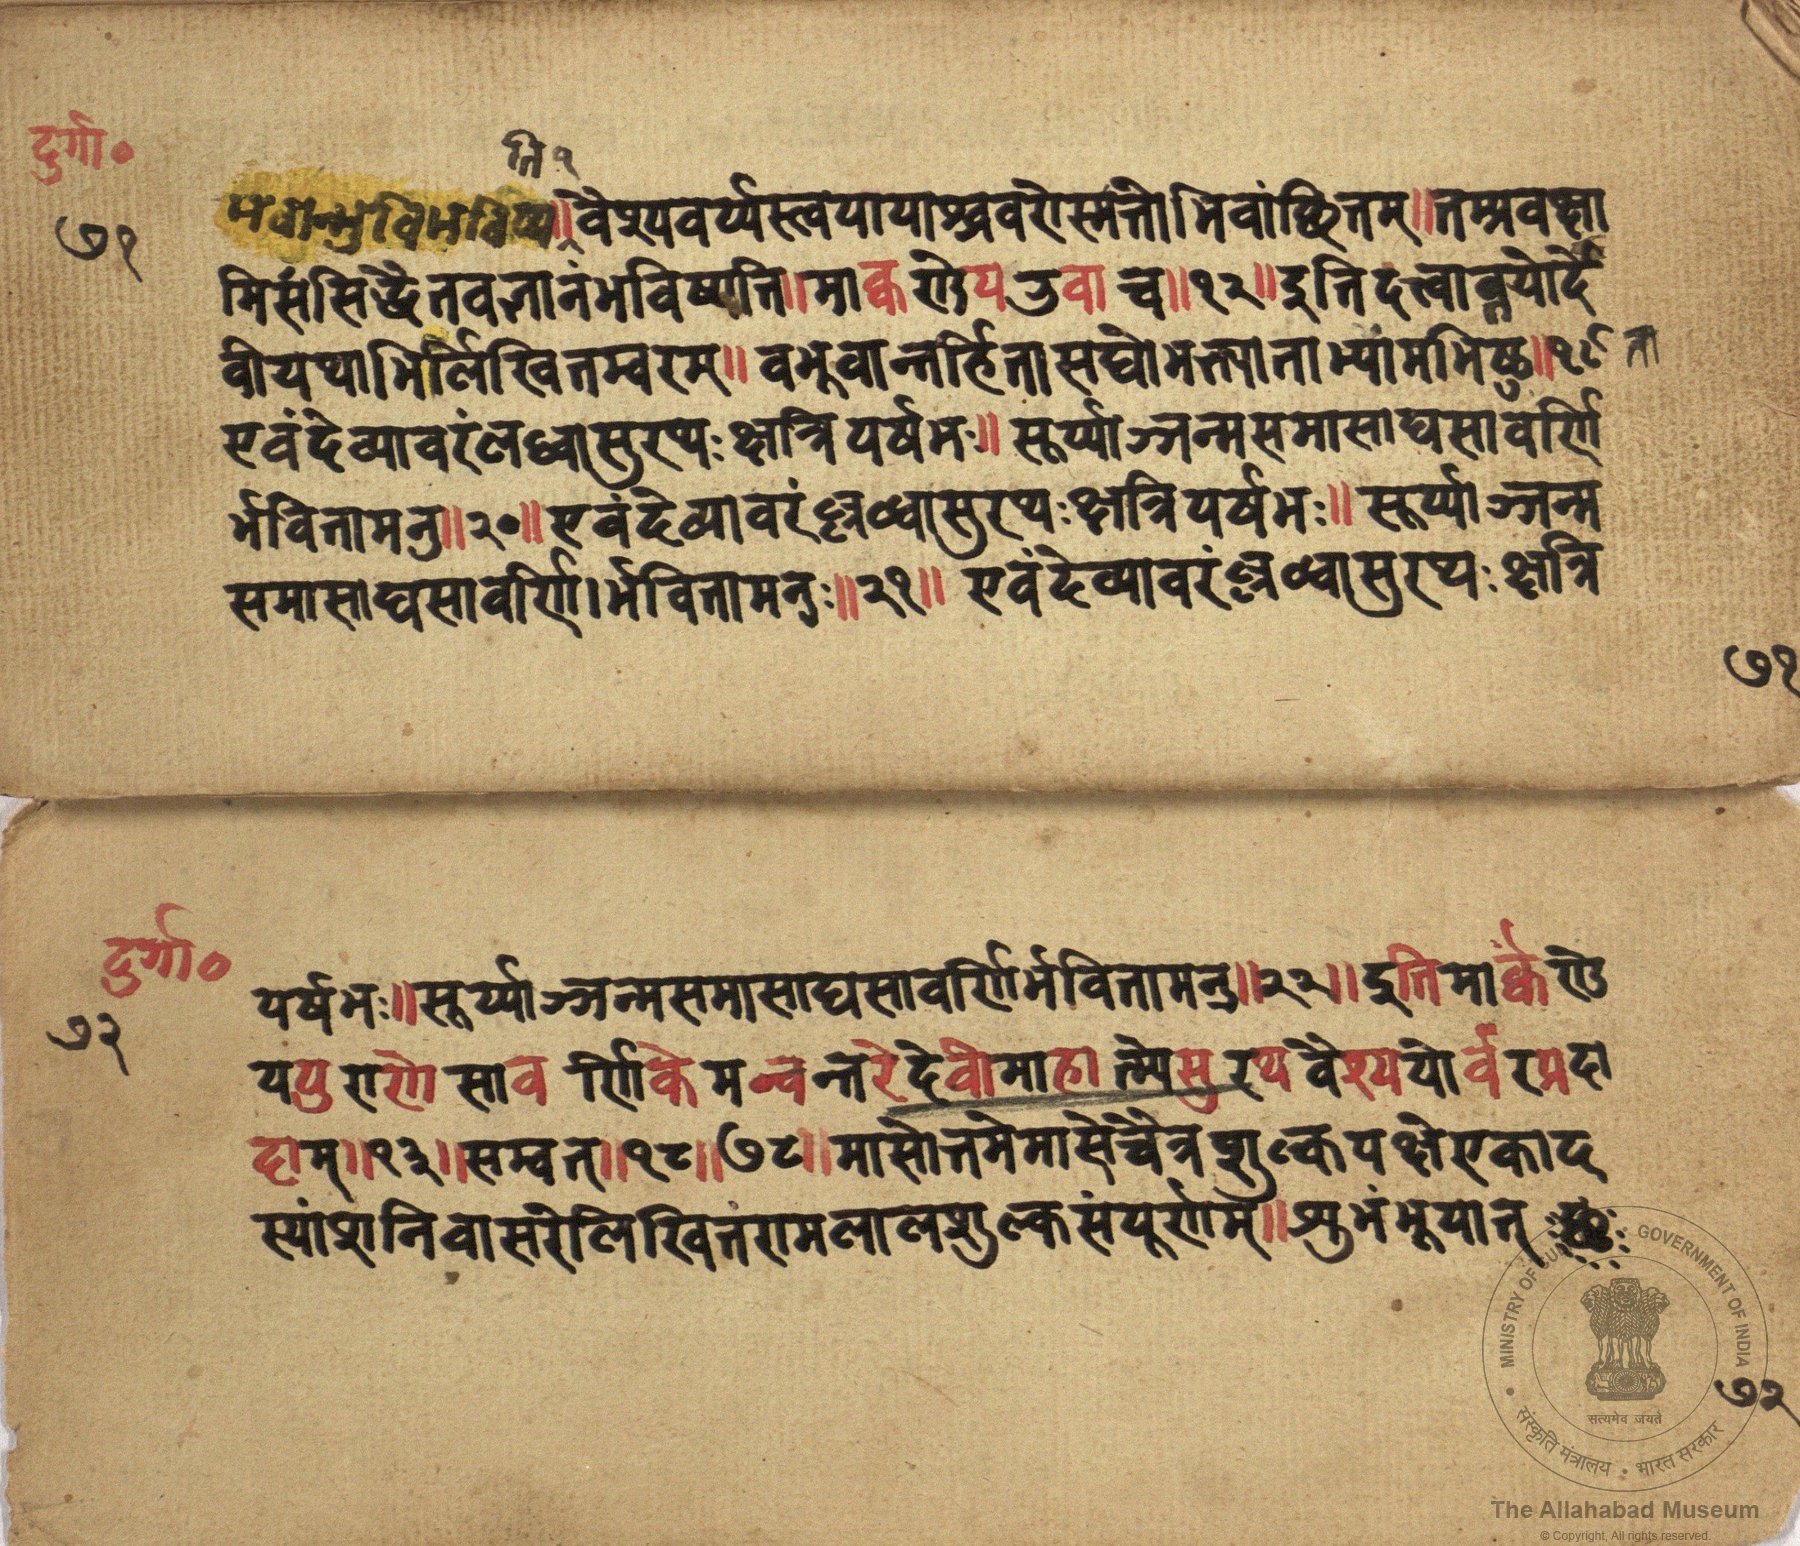 दुर्गा०
७१
ति १
भवान्भुविभविष्य॥वैश्यवर्य्यस्त्वयायाश्चवरोस्मत्तोभिवांछितम्॥तम्प्रयक्षा
मिसंसिद्धैतवज्ञानंभविष्यति॥मार्कण्डेयउवाच॥१२॥इतिदत्त्वातयोर्दे
वीयथाभिर्लिखितम्वरम्॥वभूवान्तर्हितासद्योभक्त्याताभ्यांमभिष्टु॥१९ ता
एवंदेव्यावरंलध्वासुरथः क्षत्रियर्षभः॥सूर्य्याज्जन्मसमासाद्यसावर्णि
र्भवितामनु॥२०॥एवंदेव्यावरंलध्वासुरथः क्षत्रियर्षभः॥सूर्य्याज्जन्म
समासाद्यसावर्णि।र्भवितामनुः॥२१॥ एवंदेव्यावरंलध्वासुरथः क्षत्रि
७१
दुर्गा०
७२
यर्षभः॥सूर्य्याज्जन्मसमासाद्यसावर्णिर्भवितामनु॥२२॥इतिमार्कण्डे
यपुराणेसावर्णिकेमन्वन्तरेदेवीमाहात्म्येसुरथवैश्ययोर्वरप्रदा
दाम्॥१३॥सम्वत्॥१८॥७८॥मासोत्तमेमासेचैत्रशुल्कपक्षेएकाद
स्यांशनिवासरेलिखितरामलालशुल्कसंपूर्णम्॥शुभंभूयात्
७२
MINISTRY OF CULTURE • GOVERNMENT OF INDIA
सत्यमेव जयते
संस्कृति मंत्रालय • भारत सरकार
The Allahabad Museum
© Copyright, All rights reserved.